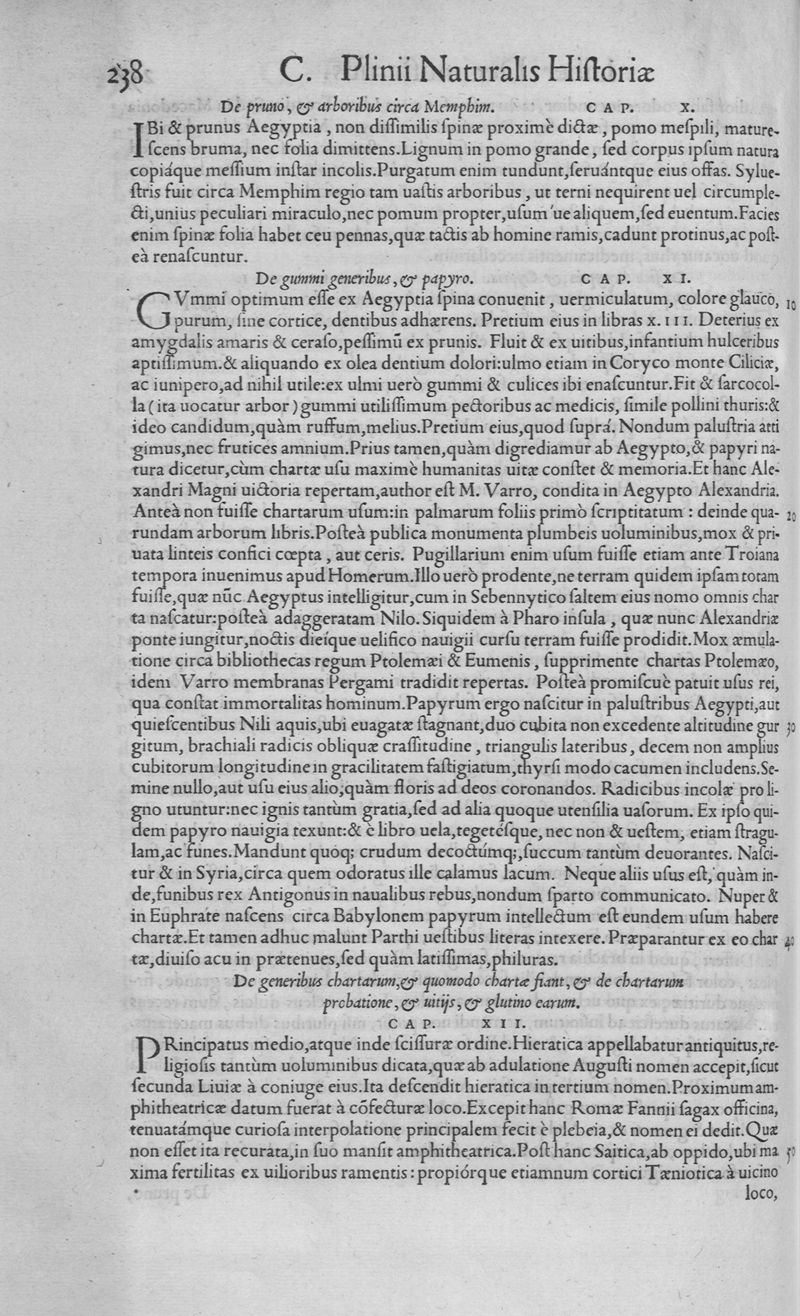 238 C. Plinii Naturalis Hiſtoriæ
De pruno, & arboribus circa Memphim. CAP. X.
IBi & prunus Aegyptia, non diſſimilis ſpinæ proximè dictæ, pomo meſpili, mature-
ſcens bruma, nec folia dimittens. Lignum in pomo grande, ſed corpus ipſum natura
copiáque meſſium inſtar incolis. Purgatum enim tundunt, ſeruántque eius offas. Sylue-
ſtris fuit circa Memphim regio tam uaſtis arboribus, ut terni nequirent uel circumple-
cti, unius peculiari miraculo, nec pomum propter, uſum ue aliquem, ſed euentum. Facies
enim ſpinæ folia habet ceu pennas, quæ tactis ab homine ramis, cadunt protinus, ac poſt-
eà renaſcuntur.
De gummi generibus, & papyro. CAP. XI.
GVmmi optimum eſſe ex Aegyptia ſpina conuenit, uermiculatum, colore glauco, 10
purum, ſine cortice, dentibus adhærens. Pretium eius in libras x. III. Deterius ex
amygdalis amaris & ceraſo, peſſimū ex prunis. Fluit & ex uitibus, infantium hulceribus
aptiſſimum. & aliquando ex olea dentium dolori: ulmo etiam in Coryco monte Ciliciæ,
ac iunipero, ad nihil utile: ex ulmi uerò gummi & culices ibi enaſcuntur. Fit & ſarcocol-
la (ita uocatur arbor) gummi utiliſſimum pectoribus ac medicis, ſimile pollini thuris: &
ideo candidum, quàm ruffum, melius. Pretium eius, quod ſuprá. Nondum paluſtria atti
gimus, nec frutices amnium. Prius tamen, quàm digrediamur ab Aegypto, & papyri na-
tura dicetur, cùm chartæ uſu maximè humanitas uitæ conſtet & memoria. Et hanc Ale-
xandri Magni uictoria repertam, author eſt M. Varro, condita in Aegypto Alexandria.
Anteà non fuiſſe chartarum uſum: in palmarum foliis primò ſcriptitatum: deinde qua- 20
rundam arborum libris. Poſteà publica monumenta plumbeis uoluminibus, mox & pri-
uata linteis confici cœpta, aut ceris. Pugillarium enim uſum fuiſſe etiam ante Troiana
tempora inuenimus apud Homerum. Illo uerò prodente, ne terram quidem ipſam totam
fuiſſe, quæ nūc Aegyptus intelligitur, cum in Sebennytico ſaltem eius nomo omnis char
ta naſcatur: poſteà adaggeratam Nilo. Siquidem à Pharo inſula, quæ nunc Alexandriæ
ponte iungitur, noctis dieíque uelifico nauigii curſu terram fuiſſe prodidit. Mox æmula-
tione circa bibliothecas regum Ptolemæi & Eumenis, ſupprimente chartas Ptolemæo,
idem Varro membranas Pergami tradidit repertas. Poſteà promiſcuè patuit uſus rei,
qua conſtat immortalitas hominum. Papyrum ergo naſcitur in paluſtribus Aegypti, aut
quieſcentibus Nili aquis, ubi euagatæ ſtagnant, duo cubita non excedente altitudine gur 30
gitum, brachiali radicis obliquæ craſſitudine, triangulis lateribus, decem non amplius
cubitorum longitudine in gracilitatem faſtigiatum, thyrſi modo cacumen includens. Se-
mine nullo, aut uſu eius alio, quàm floris ad deos coronandos. Radicibus incolæ pro li-
gno utuntur: nec ignis tantùm gratia, ſed ad alia quoque utenſilia uaſorum. Ex ipſo qui-
dem papyro nauigia texunt: & è libro uela, tegetéſque, nec non & ueſtem, etiam ſtragu-
lam, ac funes. Mandunt quoq; crudum decoctúmq;, ſuccum tantùm deuorantes. Naſci-
tur & in Syria, circa quem odoratus ille calamus lacum. Neque aliis uſus eſt, quàm in-
de, funibus rex Antigonus in naualibus rebus, nondum ſparto communicato. Nuper &
in Euphrate naſcens circa Babylonem papyrum intellectum eſt eundem uſum habere
chartæ. Et tamen adhuc malunt Parthi ueſtibus literas intexere. Præparantur ex eo char 40
tæ, diuiſo acu in prætenues, ſed quàm latiſſimas, philuras.
De generibus chartarum, & quomodo chartæ fiant, & de chartarum
probatione, & uitijs, & glutino earum.
CAP. XII.
PRincipatus medio, atque inde ſciſſuræ ordine. Hieratica appellabatur antiquitus, re-
ligioſis tantùm uoluminibus dicata, quæ ab adulatione Auguſti nomen accepit, ſicut
ſecunda Liuiæ à coniuge eius. Ita deſcendit hieratica in tertium nomen. Proximum am-
phitheatricæ datum fuerat à cōfecturæ loco. Excepit hanc Romæ Fannii ſagax officina,
tenuatámque curioſa interpolatione principalem fecit è plebeia, & nomen ei dedit. Quæ
non eſſet ita recurata, in ſuo manſit amphitheatrica. Poſt hanc Saitica, ab oppido, ubi ma 50
xima fertilitas ex uilioribus ramentis: propiórque etiamnum cortici Tæniotica à uicino
loco,